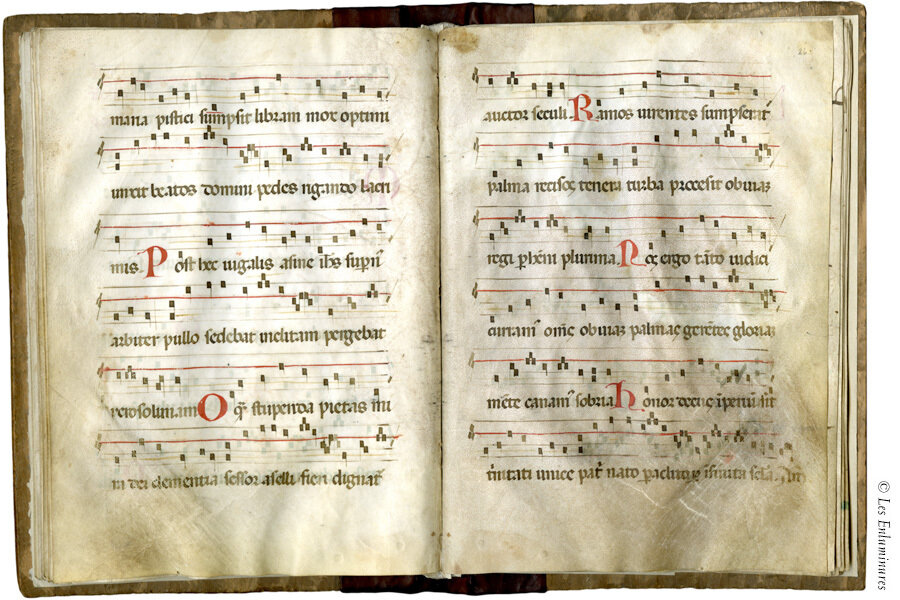 maria pistici sumpsit libram mox optimi
unxit beatos domini pedes rigando lacri
mis. Post hec iugalis asine ihs supni
arbiter pullo sedebat inclitam pergebat
ierosolimam O q stupenda pietas mi
ra dei clementia sessor aselli fieri dignat
auctor seculi. Ramos uirentes sumpserat
palma recisos tenera turba processit obuiaz
regi phenni plurima. Nos ergo tanto iudici
curram oms obuiaz palmas gerentes gloriaz
mente canam sobria. Honor decus iperiu sit
trinitati unice patri nato paclitoq ifinita scla. Am
© Les Enluminures